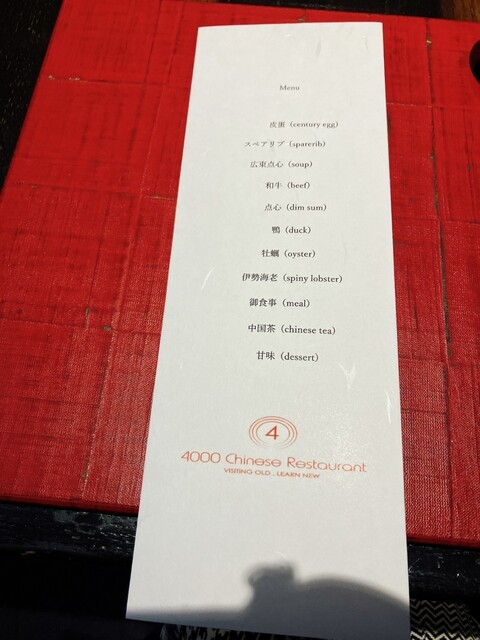 Menu
皮蛋（century egg）
スペアリブ（sparerib）
広東点心（soup）
和牛（beef）
点心（dim sum）
鴨（duck）
牡蠣（oyster）
伊勢海老（spiny lobster）
御食事（meal）
中国茶（chinese tea）
甘味（dessert）
4
4000 Chinese Restaurant
VISITING OLD , LEARN NEW